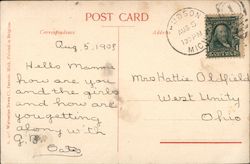 POST CARD
Correspondence
HUDSON
AUG 5
MICH
Aug. 5, 1908
Hello Mamma
how are you
and the girls
and how are
you getting
along with
Mrs Hattie Oldfield
West Unity
Ohio